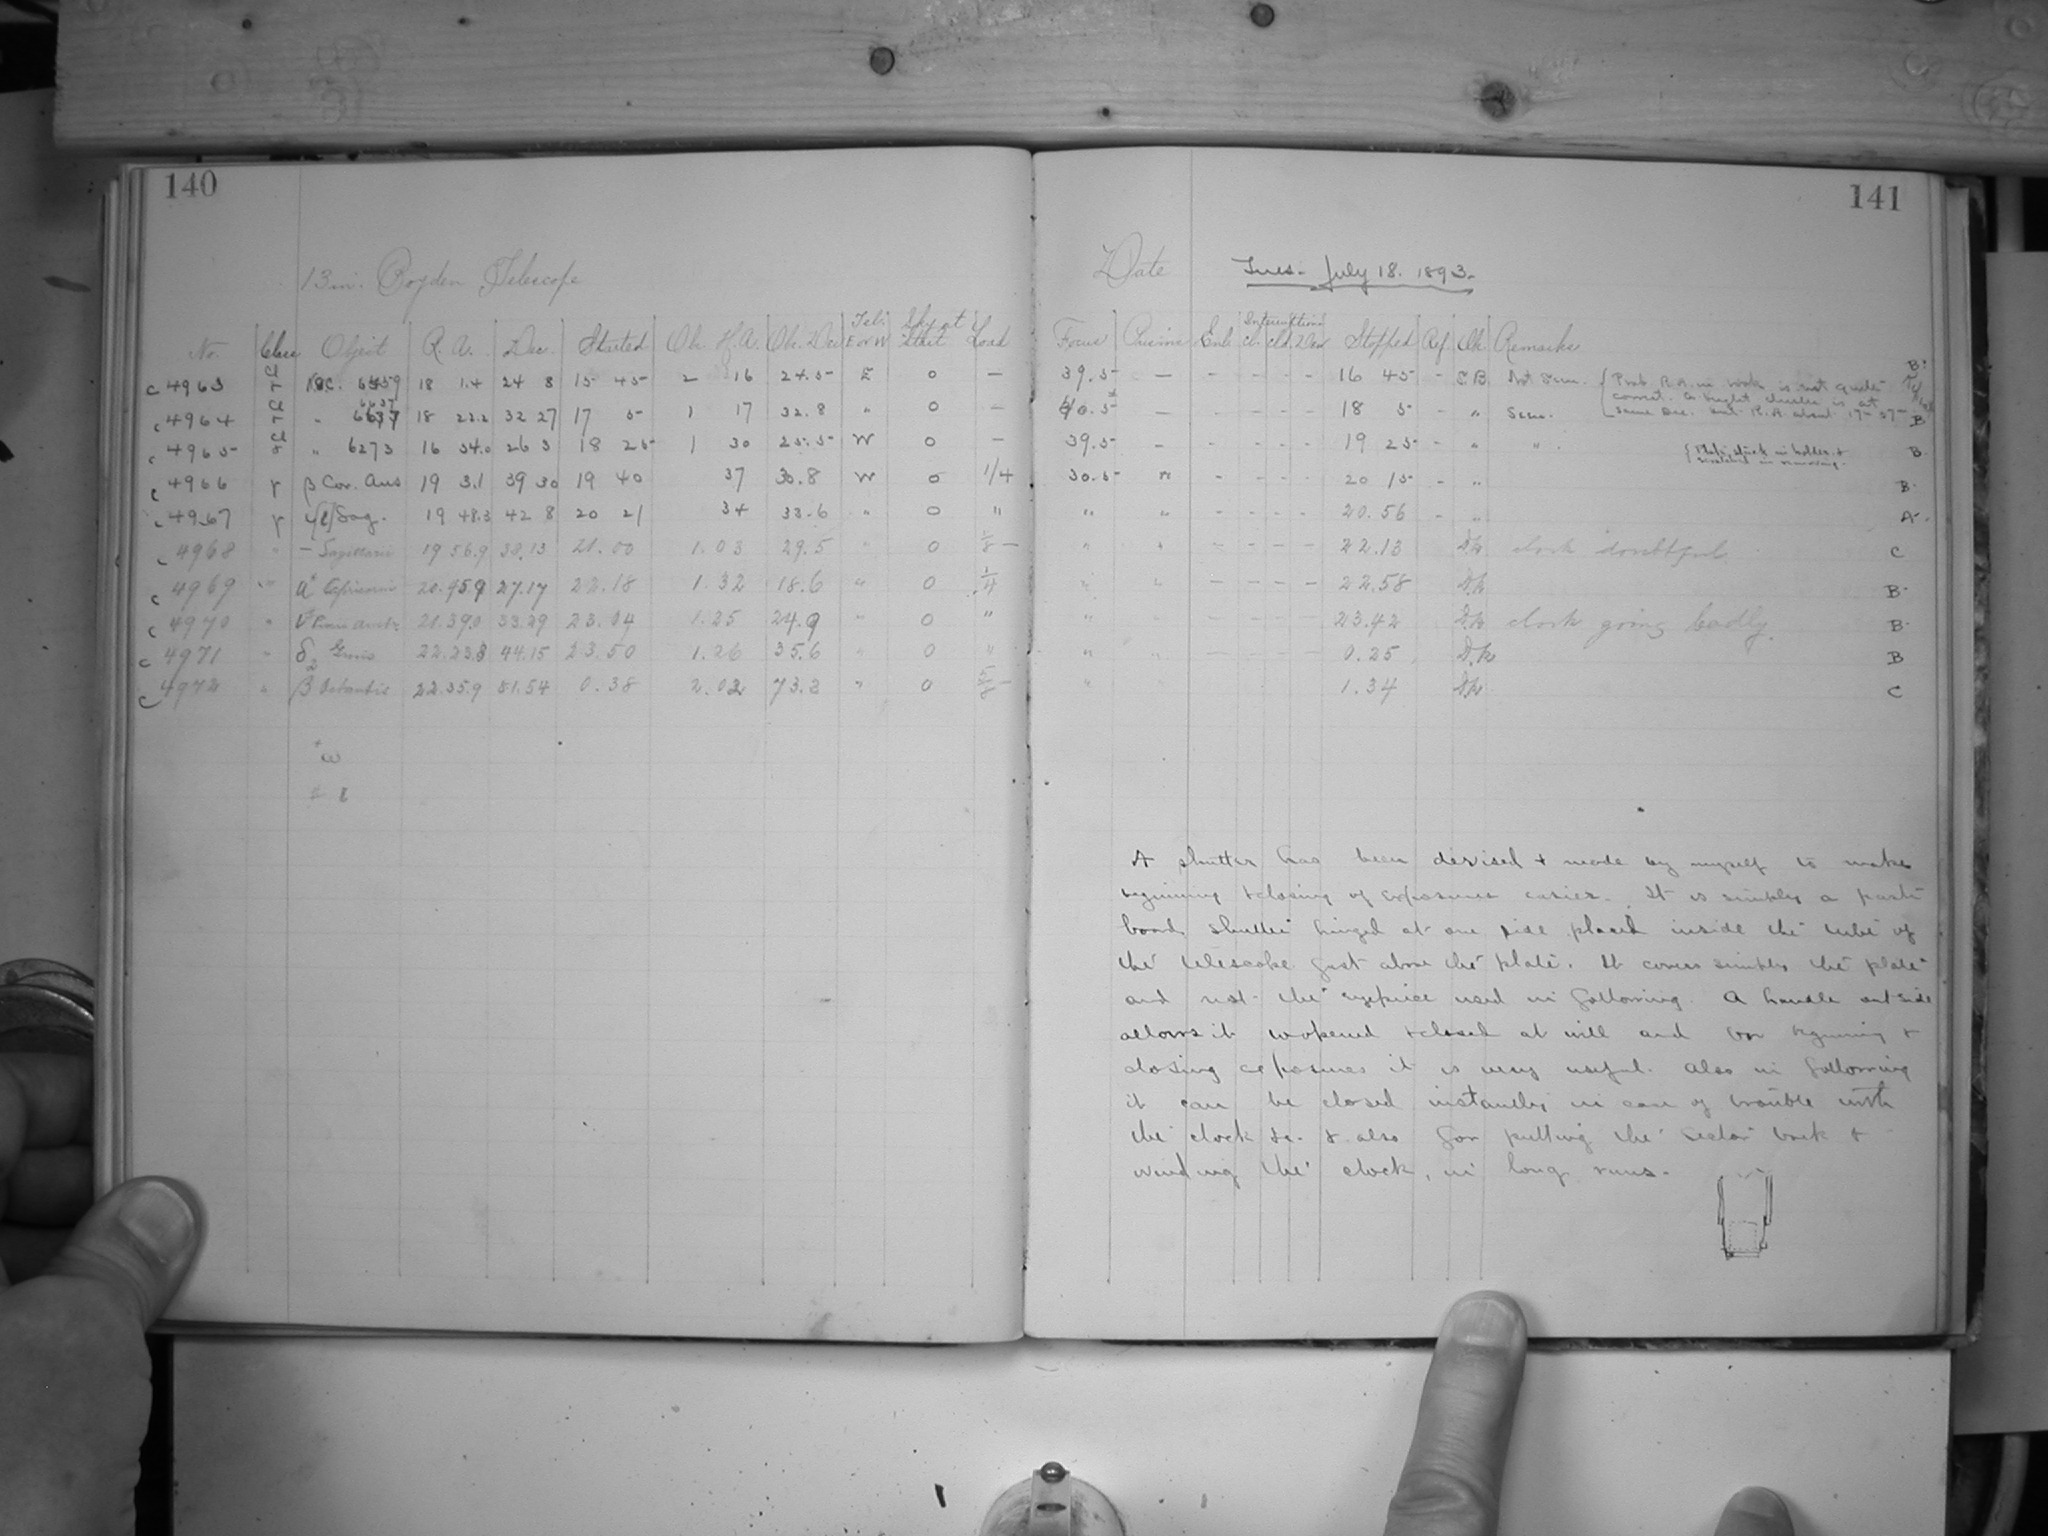 140
13 in. Boyden Telescope
No. Class Object R. A. Dec. Started Ob. H. A. Ob. Dec Tel. E or W Sky at Start Load
c 4963 Cl N.G.C. 18 1.4 24 8 15 45 2 16 24.5 E 0 —
c 4964 Cl " 6637 18 22.2 32 27 17 5 1 17 32.8 " 0 —
c 4965 Cl " 6273 16 54.0 26 3 18 25 1 30 25.5 W 0 —
c 4966 r β Cor. Aus 19 3.1 39 30 19 40 37 W 0 1/4
c 4967 r Sag. 19 48.3 42 8 20 21 34 33.6 " 0 "
c 4968 " — Sagittarii 19 56.9 38.13 21.00 1.03 29.5 " 0 1/8 —
c 4969 " 27.17 22.18 1.32 18.6 " 0 1/4
c 4970 " 21.39.0 33.29 23.04 1.25 24.9 " 0 "
c 4971 " δ2 Gruis 22.23.3 44.15 23.50 1.26 35.6 " 0 "
c 4972 " β Octantis 22.35.9 81.54 0.38 2.02 73.3 " 0 5/8 —
ω
ι
141
Date Tues. July 18. 1893.
Focus Prisms Enl. Interruptions Cl. Cld. Dew Stopped Ref. Ob. Remarks
39.5 — - - - - 16 45 - S B Not seen. { Prob. R. A. in book is not quite B
correct. A bright cluster is at
40.5 — - - - - 18 5 - " Seen. same Dec. but R. A. about 17-57- B
39.5 - - - - - 19 25 - " " { Plate stuck in holder & B
scratched in removing.
30.5 " - - - - 20 15 - " B
" " 20.56 - " A
" " - - - - 22.13 Dk clock doubtful C
" " - - - - 22.58 Dk B
" " 23.42 Dk clock going badly. B
" " 0.25 Dk B
" " 1.34 Dk C
A shutter has been devised & made by myself to make
beginning & closing of exposures easier. It is simply a paste
board shutter hinged at one side placed inside the tube of
the telescope just above the plate. It covers simply the plate
and not the eyepiece used in following. A handle outside
allows it to opened & closed at will and for beginning &
closing exposures it is very useful. Also in following
it can be closed instantly in case of trouble with
the clock &c. & also for putting the sector back &
winding the clock, in long runs.